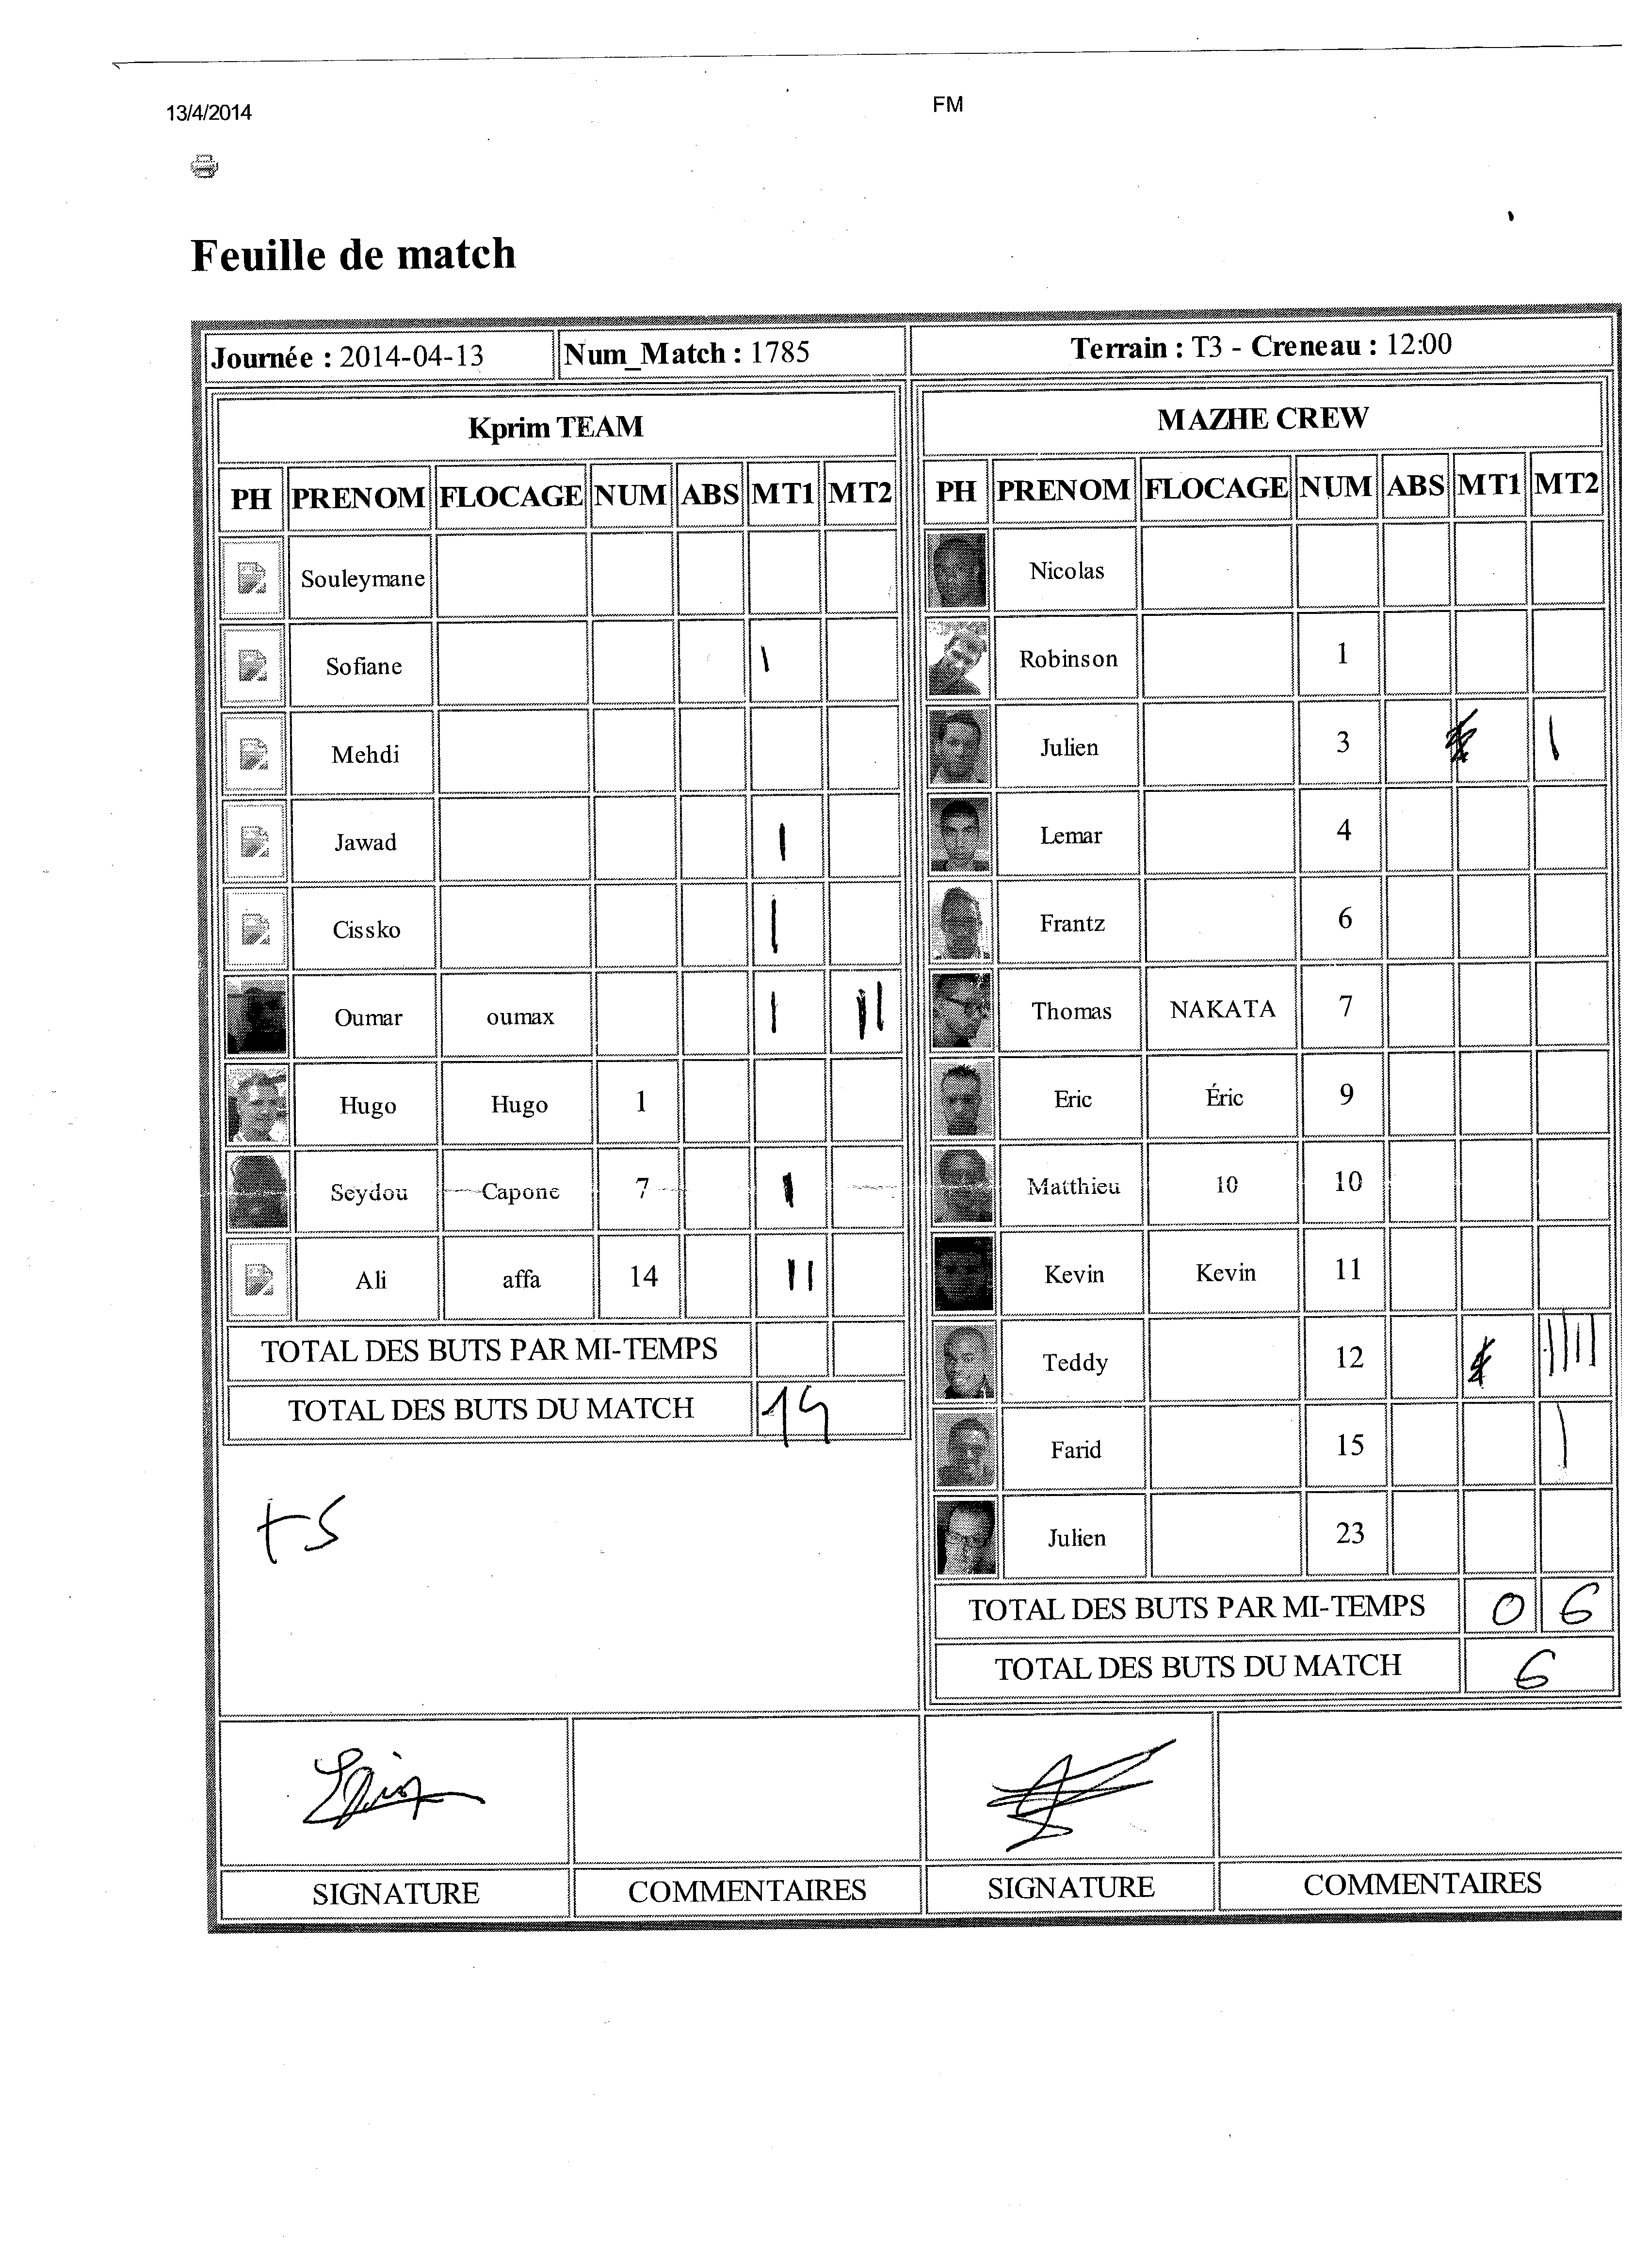 13/4/2014
FM
Feuille de match
Journée : 2014-04-13
Num_Match : 1785
Terrain : T3 - Creneau : 12:00
Kprim TEAM
PH PRENOM FLOCAGE NUM ABS MT1 MT2
Souleymane
Sofiane I
Mehdi
Jawad I
Cissko I
Oumar oumax I II
Hugo Hugo 1
Seydou Capone 7 I
Ali affa 14 II
TOTAL DES BUTS PAR MI-TEMPS
TOTAL DES BUTS DU MATCH 14
+5
SIGNATURE
COMMENTAIRES
MAZHE CREW
PH PRENOM FLOCAGE NUM ABS MT1 MT2
Nicolas
Robinson 1
Julien 3 I
Lemar 4
Frantz 6
Thomas NAKATA 7
Eric Éric 9
Matthieu 10 10
Kevin Kevin 11
Teddy 12 IIII
Farid 15 I
Julien 23
TOTAL DES BUTS PAR MI-TEMPS 0 6
TOTAL DES BUTS DU MATCH 6
SIGNATURE
COMMENTAIRES